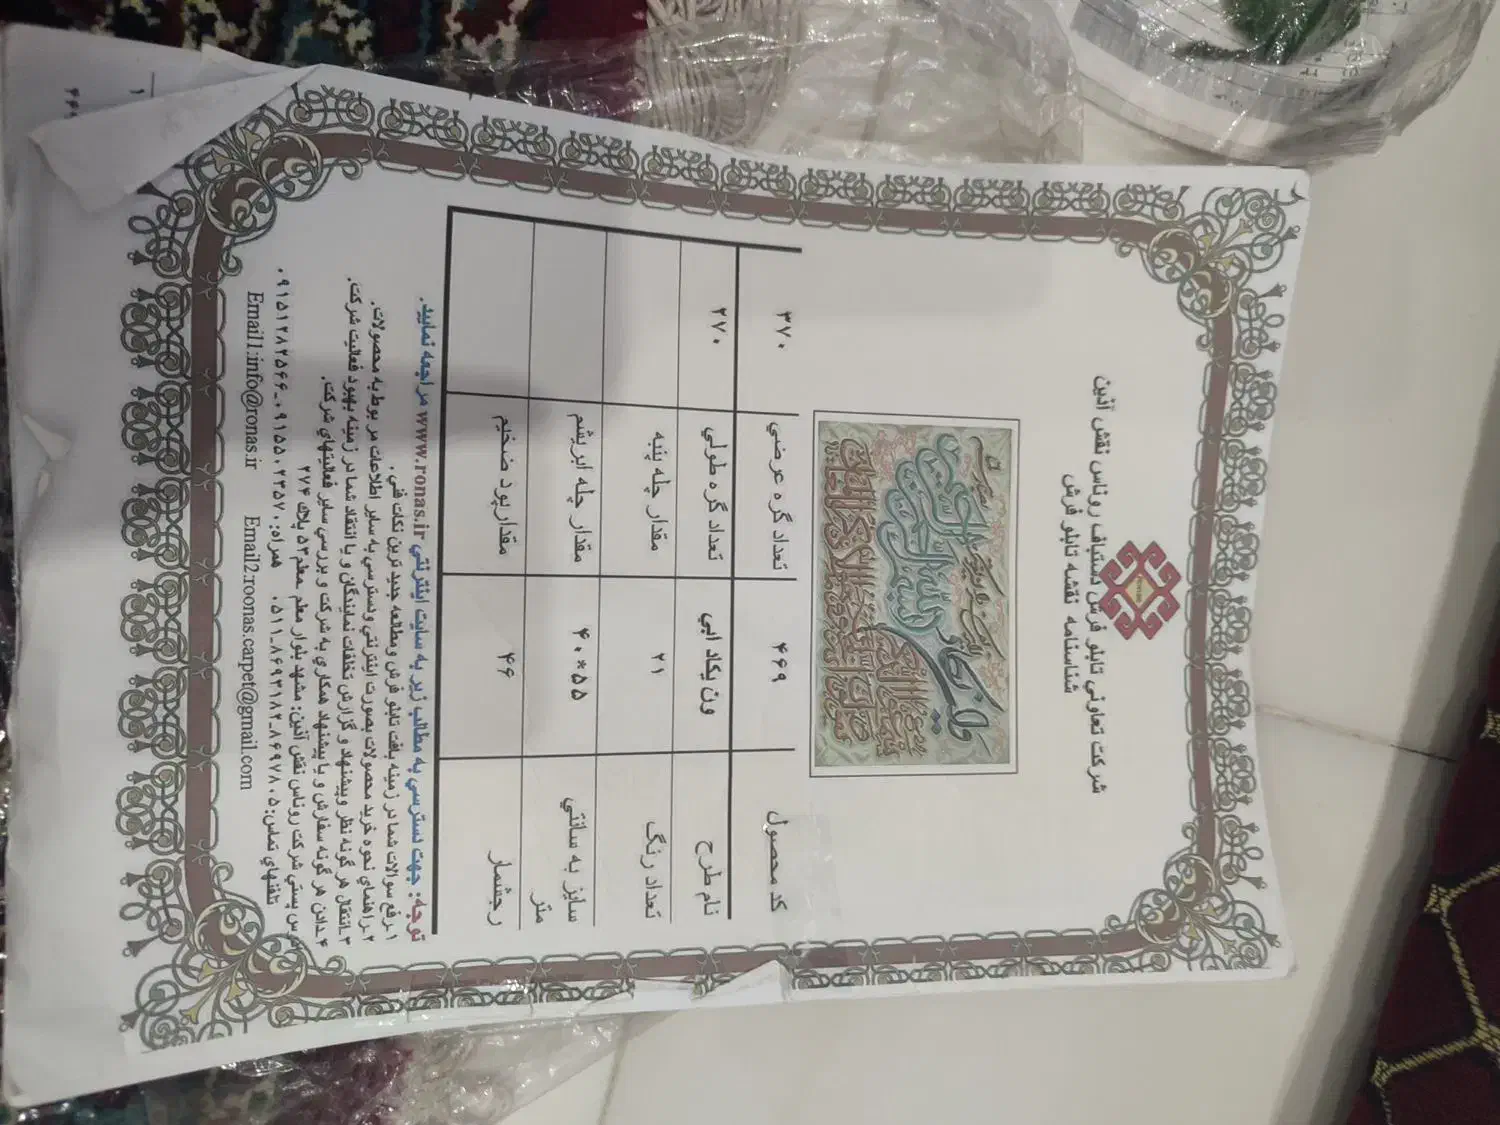 شرکت تعاونی تابلو فرش دستباف روناس نقش آذین
شناسنامه نقشه تابلو فرش
کد محصول ۴۶۹ تعداد گره عرضي ۳۷۰
نام طرح ون یکاد ابي تعداد گره طولي ۲۷۰
تعداد رنگ ۲۱ مقدار چله پنبه
سایز به سانتي متر ۵۵*۴۰ مقدار چله ابریشم
رجشمار ۴۶ مقدار پود ضخیم
توجه: جهت دسترسي به مطالب زیر به سایت اینترنتي www.ronas.ir مراجعه نمایید.
۱-رفع سوالات شما در زمینه بافت تابلو فرش ومطالعه جدید ترین نکات فني.
۲-راهنماي نحوه خرید محصولات بصورت اینترنتي و دسترسي به سایر اطلاعات مر بوط به محصولات.
۳-انتقال هر گونه نظر وپیشنهاد و گزارش تخلفات نمایندگان و یا انتقاد شما در زمینه بهبود فعالیت شرکت.
۴-دادن هر گونه سفارش و یا پیشنهاد همکاري به شرکت و بررسي سایر فعالیتهاي شرکت.
پستي شرکت روناس نقش آذین: مشهد بلوار معلم معلم۵۳ پلاک ۲۷۴
تلفنهاي تماس:۸۶۹۷۸۰۵-۸۶۹۳۱۸۲-۰۵۱۱ همراه:۰۹۱۵۵۰۲۳۵۷۰-۰۹۱۵۱۲۸۲۵۶۶
Email1:info@ronas.ir Email2:roonas.carpet@gmail.com